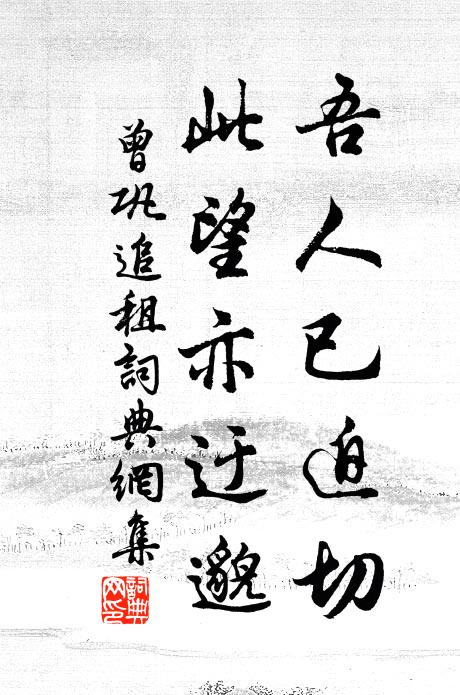 吾人已迫切
此望亦迂邈
曾巩追租詞典網集
詞典网印